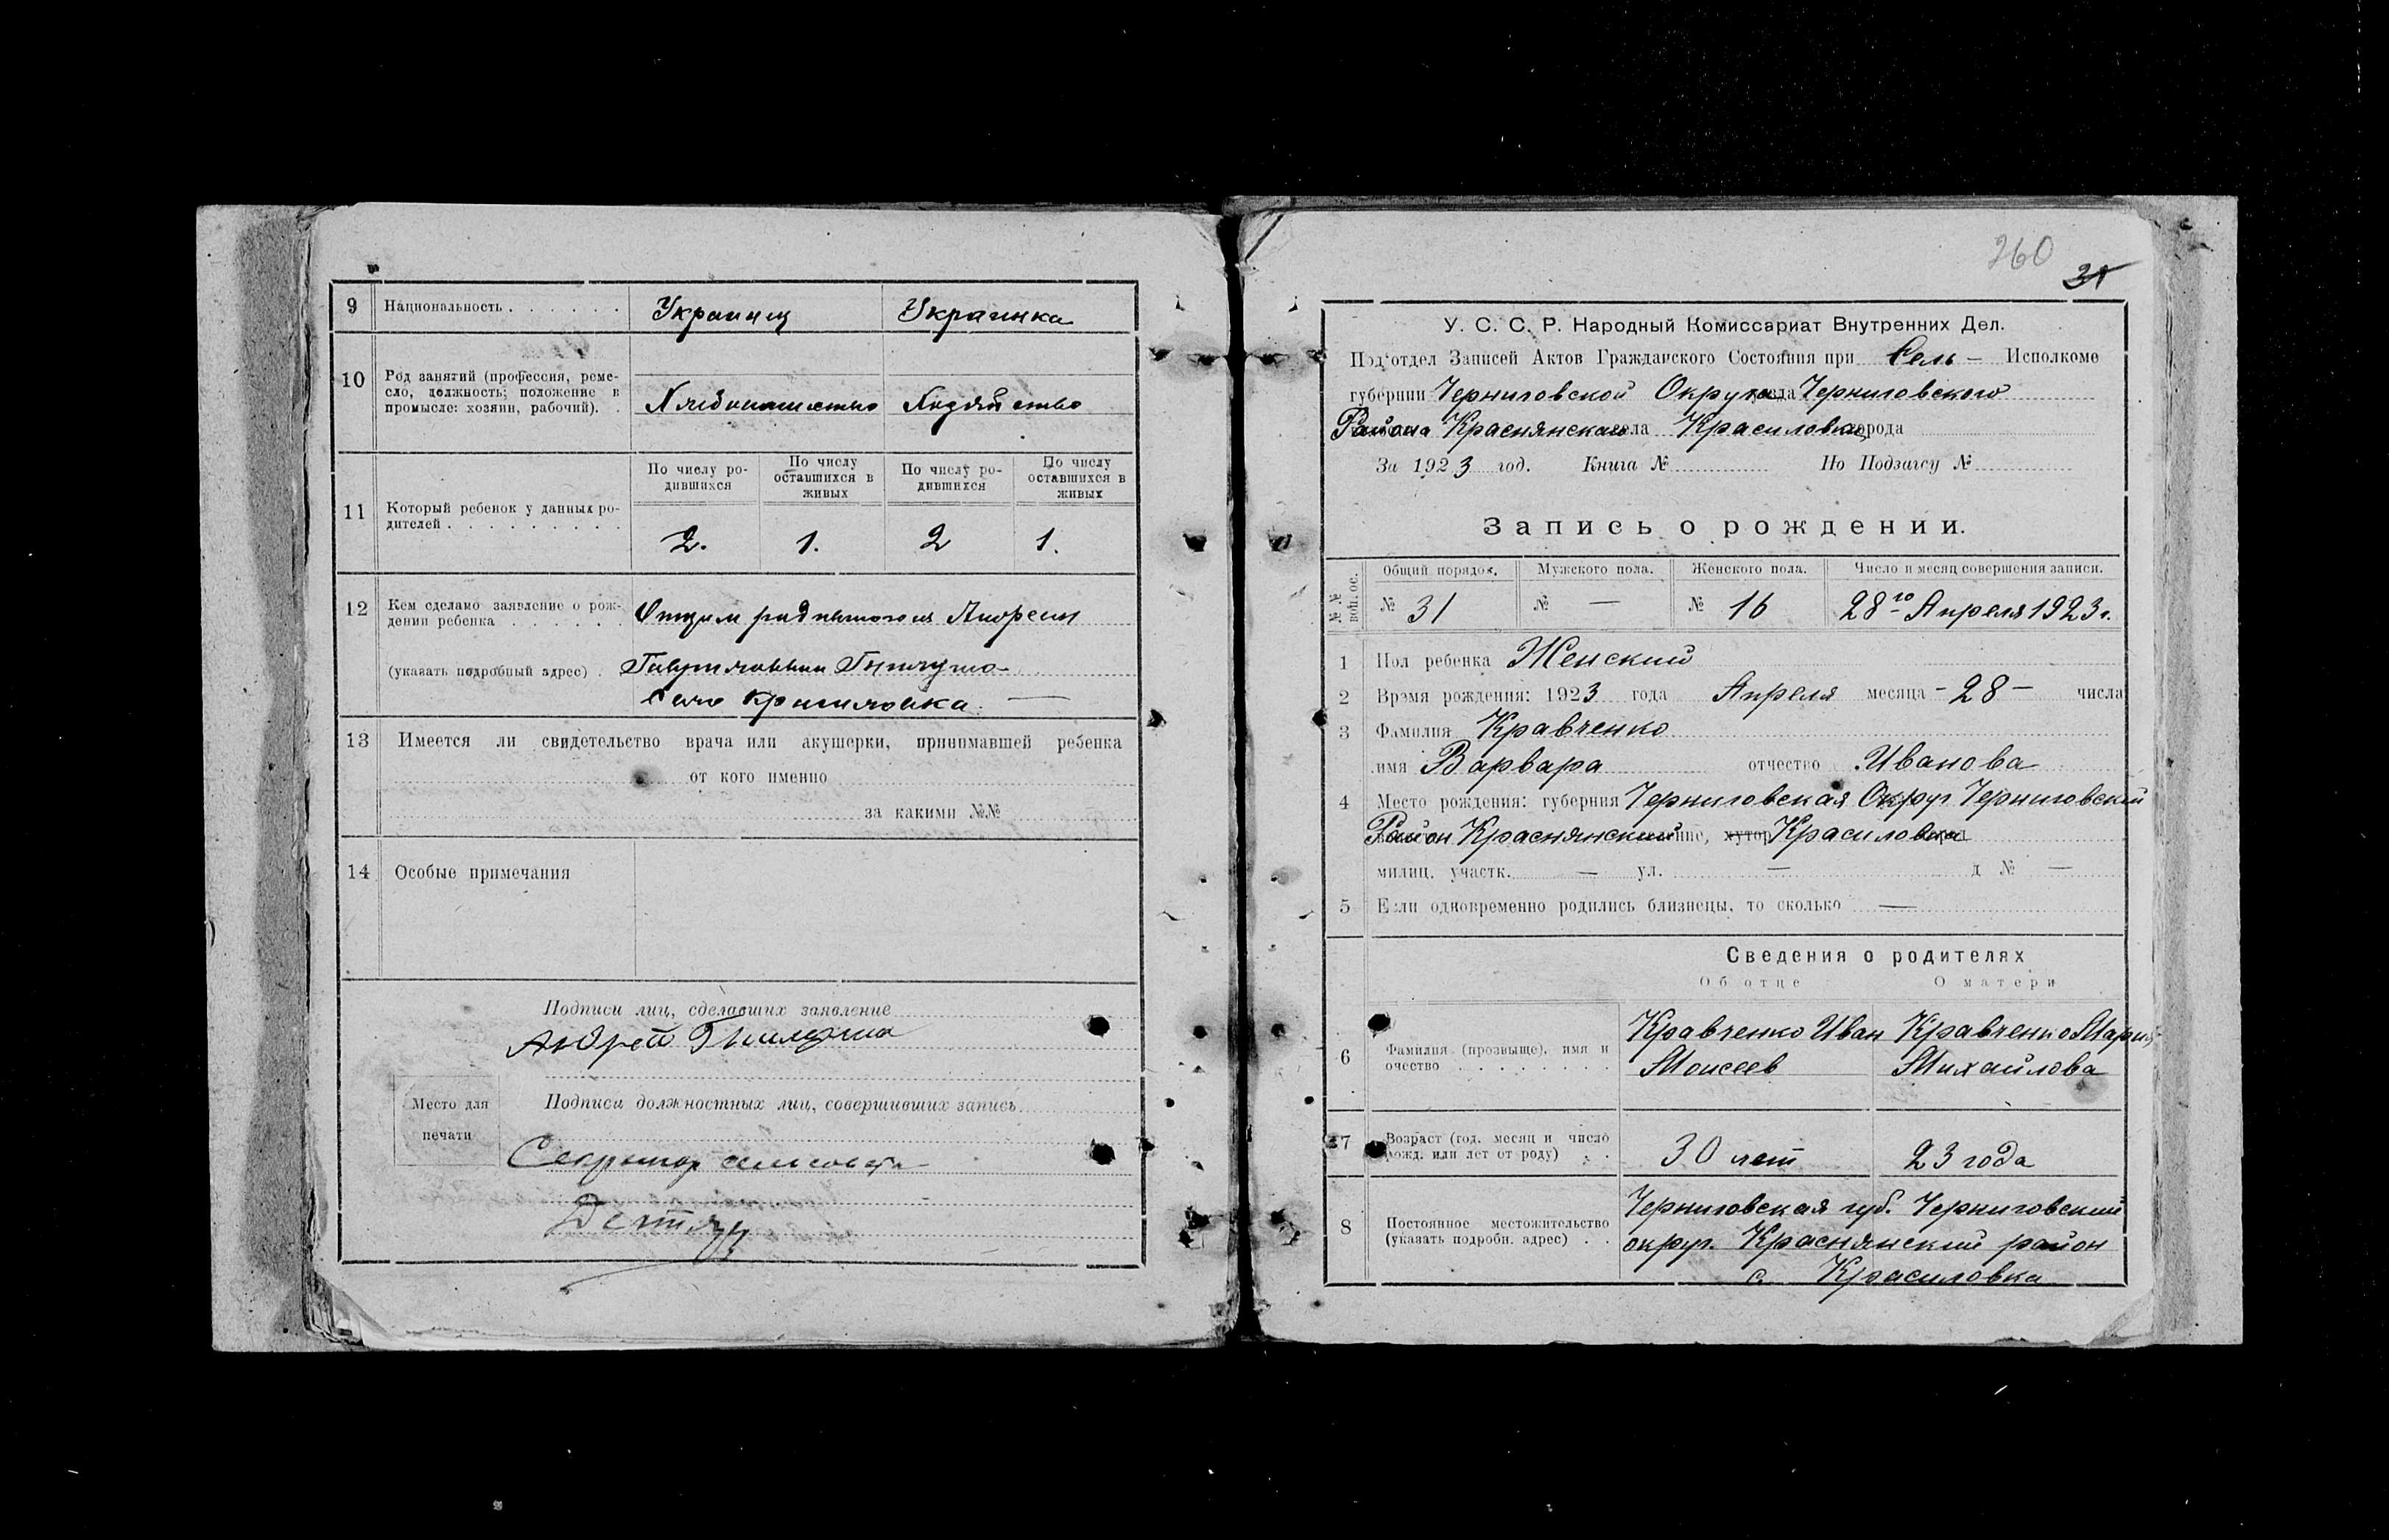 9 Национальность . . . . . . Украинец Украинка
10 Род занятий (профессия, реме-
сло, должность; положение в
промысле: хозяин, рабочий). . Хлебопашество Хозяйство
11 Который ребенок у данных ро-
дителей . . . . . . . . .
По числу ро-
дившихся
По числу
оставшихся в
живых
По числу ро-
дившихся
По числу
оставшихся в
живых
2. 1. 2 1.
12 Кем сделано заявление о рож-
дении ребенка . . . . . . Отцом родившогося Андреем
(указать подробный адрес) .
Село Красиловка. —
13 Имеется ли свидетельство врача или акушерки, принимавшей ребенка
от кого именно
за какими №№
14 Особые примечания
Подписи лиц, сделавших заявление
Андрей
Место для
печати
Подписи должностных лиц, совершивших запись
Секретар сельсовета
260
31
У. С. С. Р. Народный Комиссариат Внутренних Дел.
Подотдел Записей Актов Гражданского Состояния при Сель – Исполкоме
губернии Черниговской Округа уезда Черниговского
Района Краснянского села Красиловка города
За 1923 год. Книга № По Подзагсу №
Запись о рождении.
№№ воп. ос.
Общий порядок. Мужского пола. Женского пола. Число и месяц совершения записи.
№ 31 № — № 16 28го Апреля 1923 г.
1 Пол ребенка Женский
2 Время рождения: 1923 года Апреля месяца – 28 – числа
3 Фамилия Кравченко
имя Варвара отчество Иванова
4 Место рождения: губерния Черниговская Округ Черниговский
Район Краснянский хутор Красиловка
милиц. участк. — ул. — д № —
5 Если одновременно родились близнецы, то сколько —
Сведения о родителях
Об отце О матери
6 Фамилия (прозвыще), имя и
очество . . . . . . . .
Кравченко Иван
Моисеев
Кравченко Мария
Михайлова
7 Возраст (год, месяц и число
рожд. или лет от роду) . . 30 лет 23 года
8 Постоянное местожительство
(указать подробн. адрес) . .
Черниговская губ. Черниговский
округ. Краснянский район
с. Красиловка